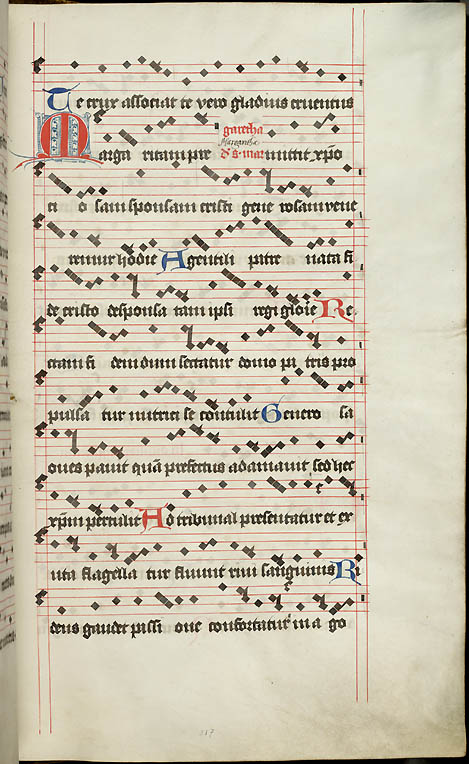 Te crux associat te vero gladius cruentus
garetha
Margaretha
Marga ritam pre D s. mar mittit xpō
ti o sam sponsam cristi gene rosam vene
remur hodie A gentili patre nata fi
de cristo desponsa tam ipsi regi gloīe Re
ctam fi dem dum sectatur domo pa tris pro
pulsa tur nutrici se contulit Genero sa
oues pauit quā prefectus adamauit sed hec
xpm pertulit Ad tribunal presentatur et ex
uta flagella tur fluunt riui sanguinis Ri
dens gaudet passi one confortatur in a go
217